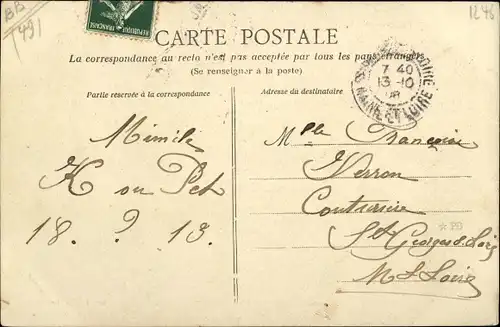 BB
(49)
1246
RÉPUBLIQUE FRANÇAISE
CARTE POSTALE
La correspondance au recto n'est pas acceptée par tous les pays étrangers
(Se renseigner à la poste)
7 40
13-10
08
MAINE-ET-LOIRE
Partie réservée à la correspondance
Adresse du destinataire
Mimile
K ou Pet
18. ? 13.
Mlle Francoise
Verron
Couturière
St Georges s. Loire
M. L Loire